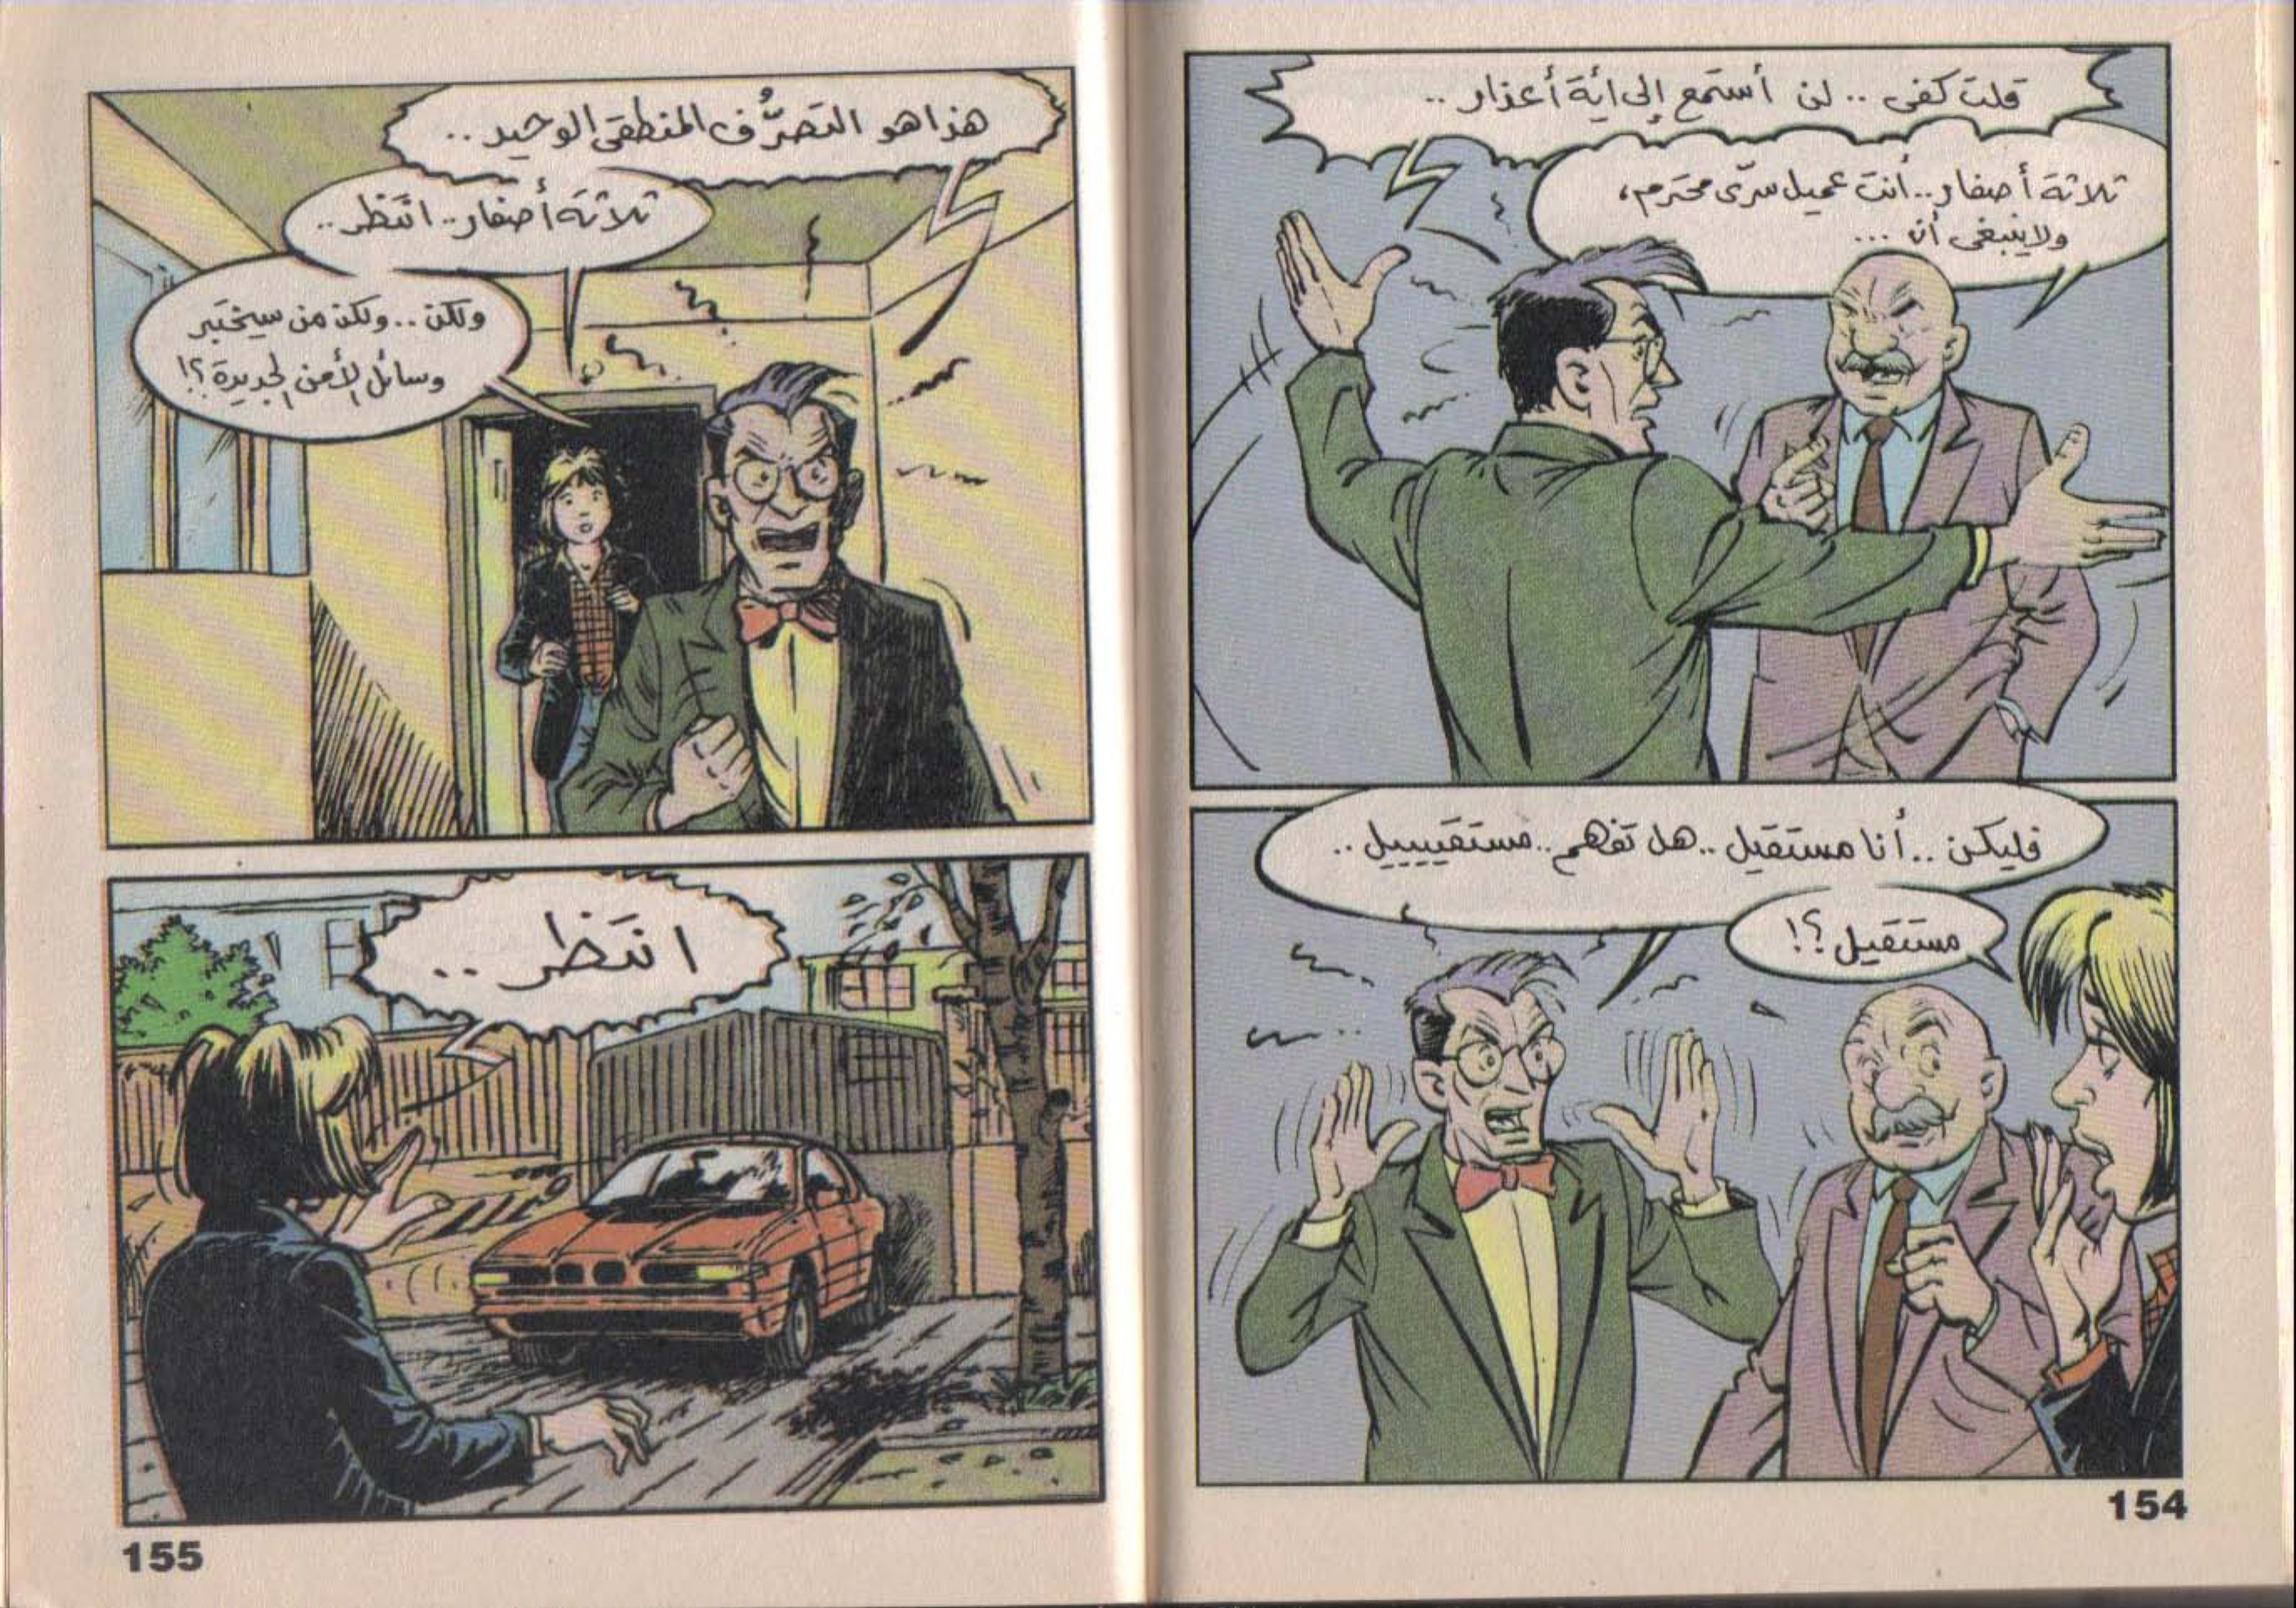 قلت كفى .. لن أستمع إلى أية أعذار ..
ثلاثة أصفار .. أنت عميل سرّى محترم،
ولا ينبغى أن ...
فليكن .. أنا مستقيل .. هل تفهم .. مستقييييل ..
مستقيل ؟!
154
هذا هو التصرُّف المنطقى الوحيد ..
ثلاثة أصفار .. انتظر ..
ولكن .. ولكن من سيختبر
وسائل الأمن الجديدة ؟!
انتظر ..
155